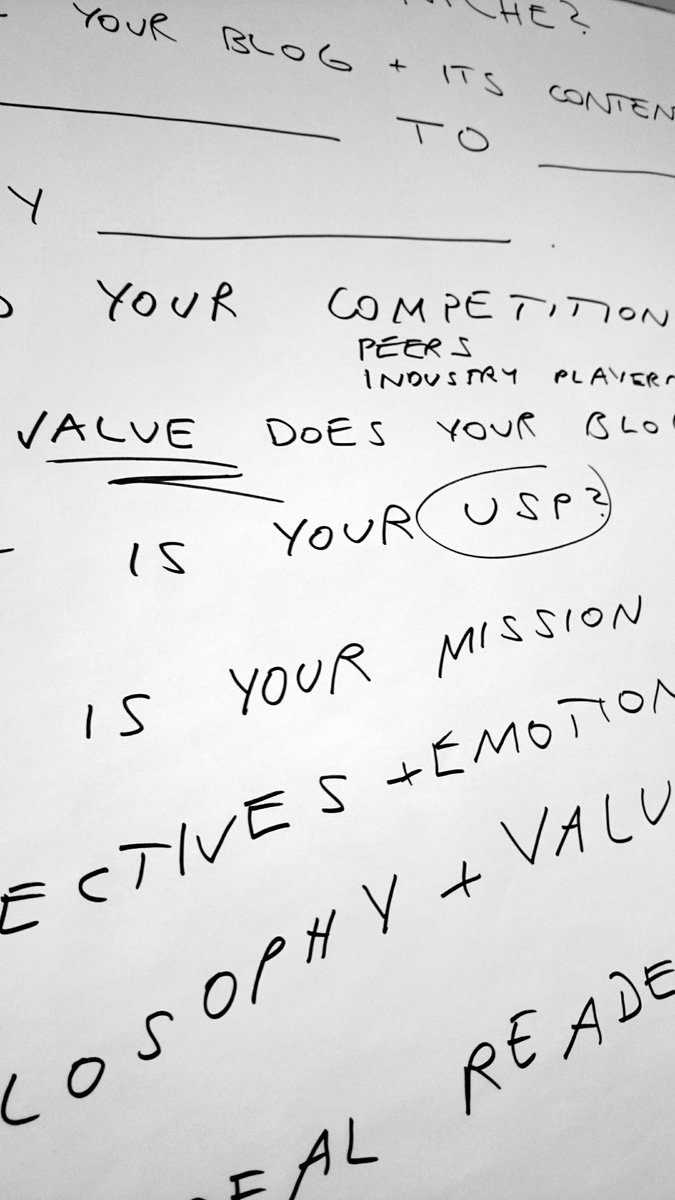 YOUR BLOG + ITS CONTEN
TO
Y
YOUR COMPETITION
PEERS
INDUSTRY PLAYER
VALUE DOES YOUR BLO
IS YOUR USP?
IS YOUR MISSION
ECTIVES + EMOTION
LOSOPHY + VALU
EAL READE